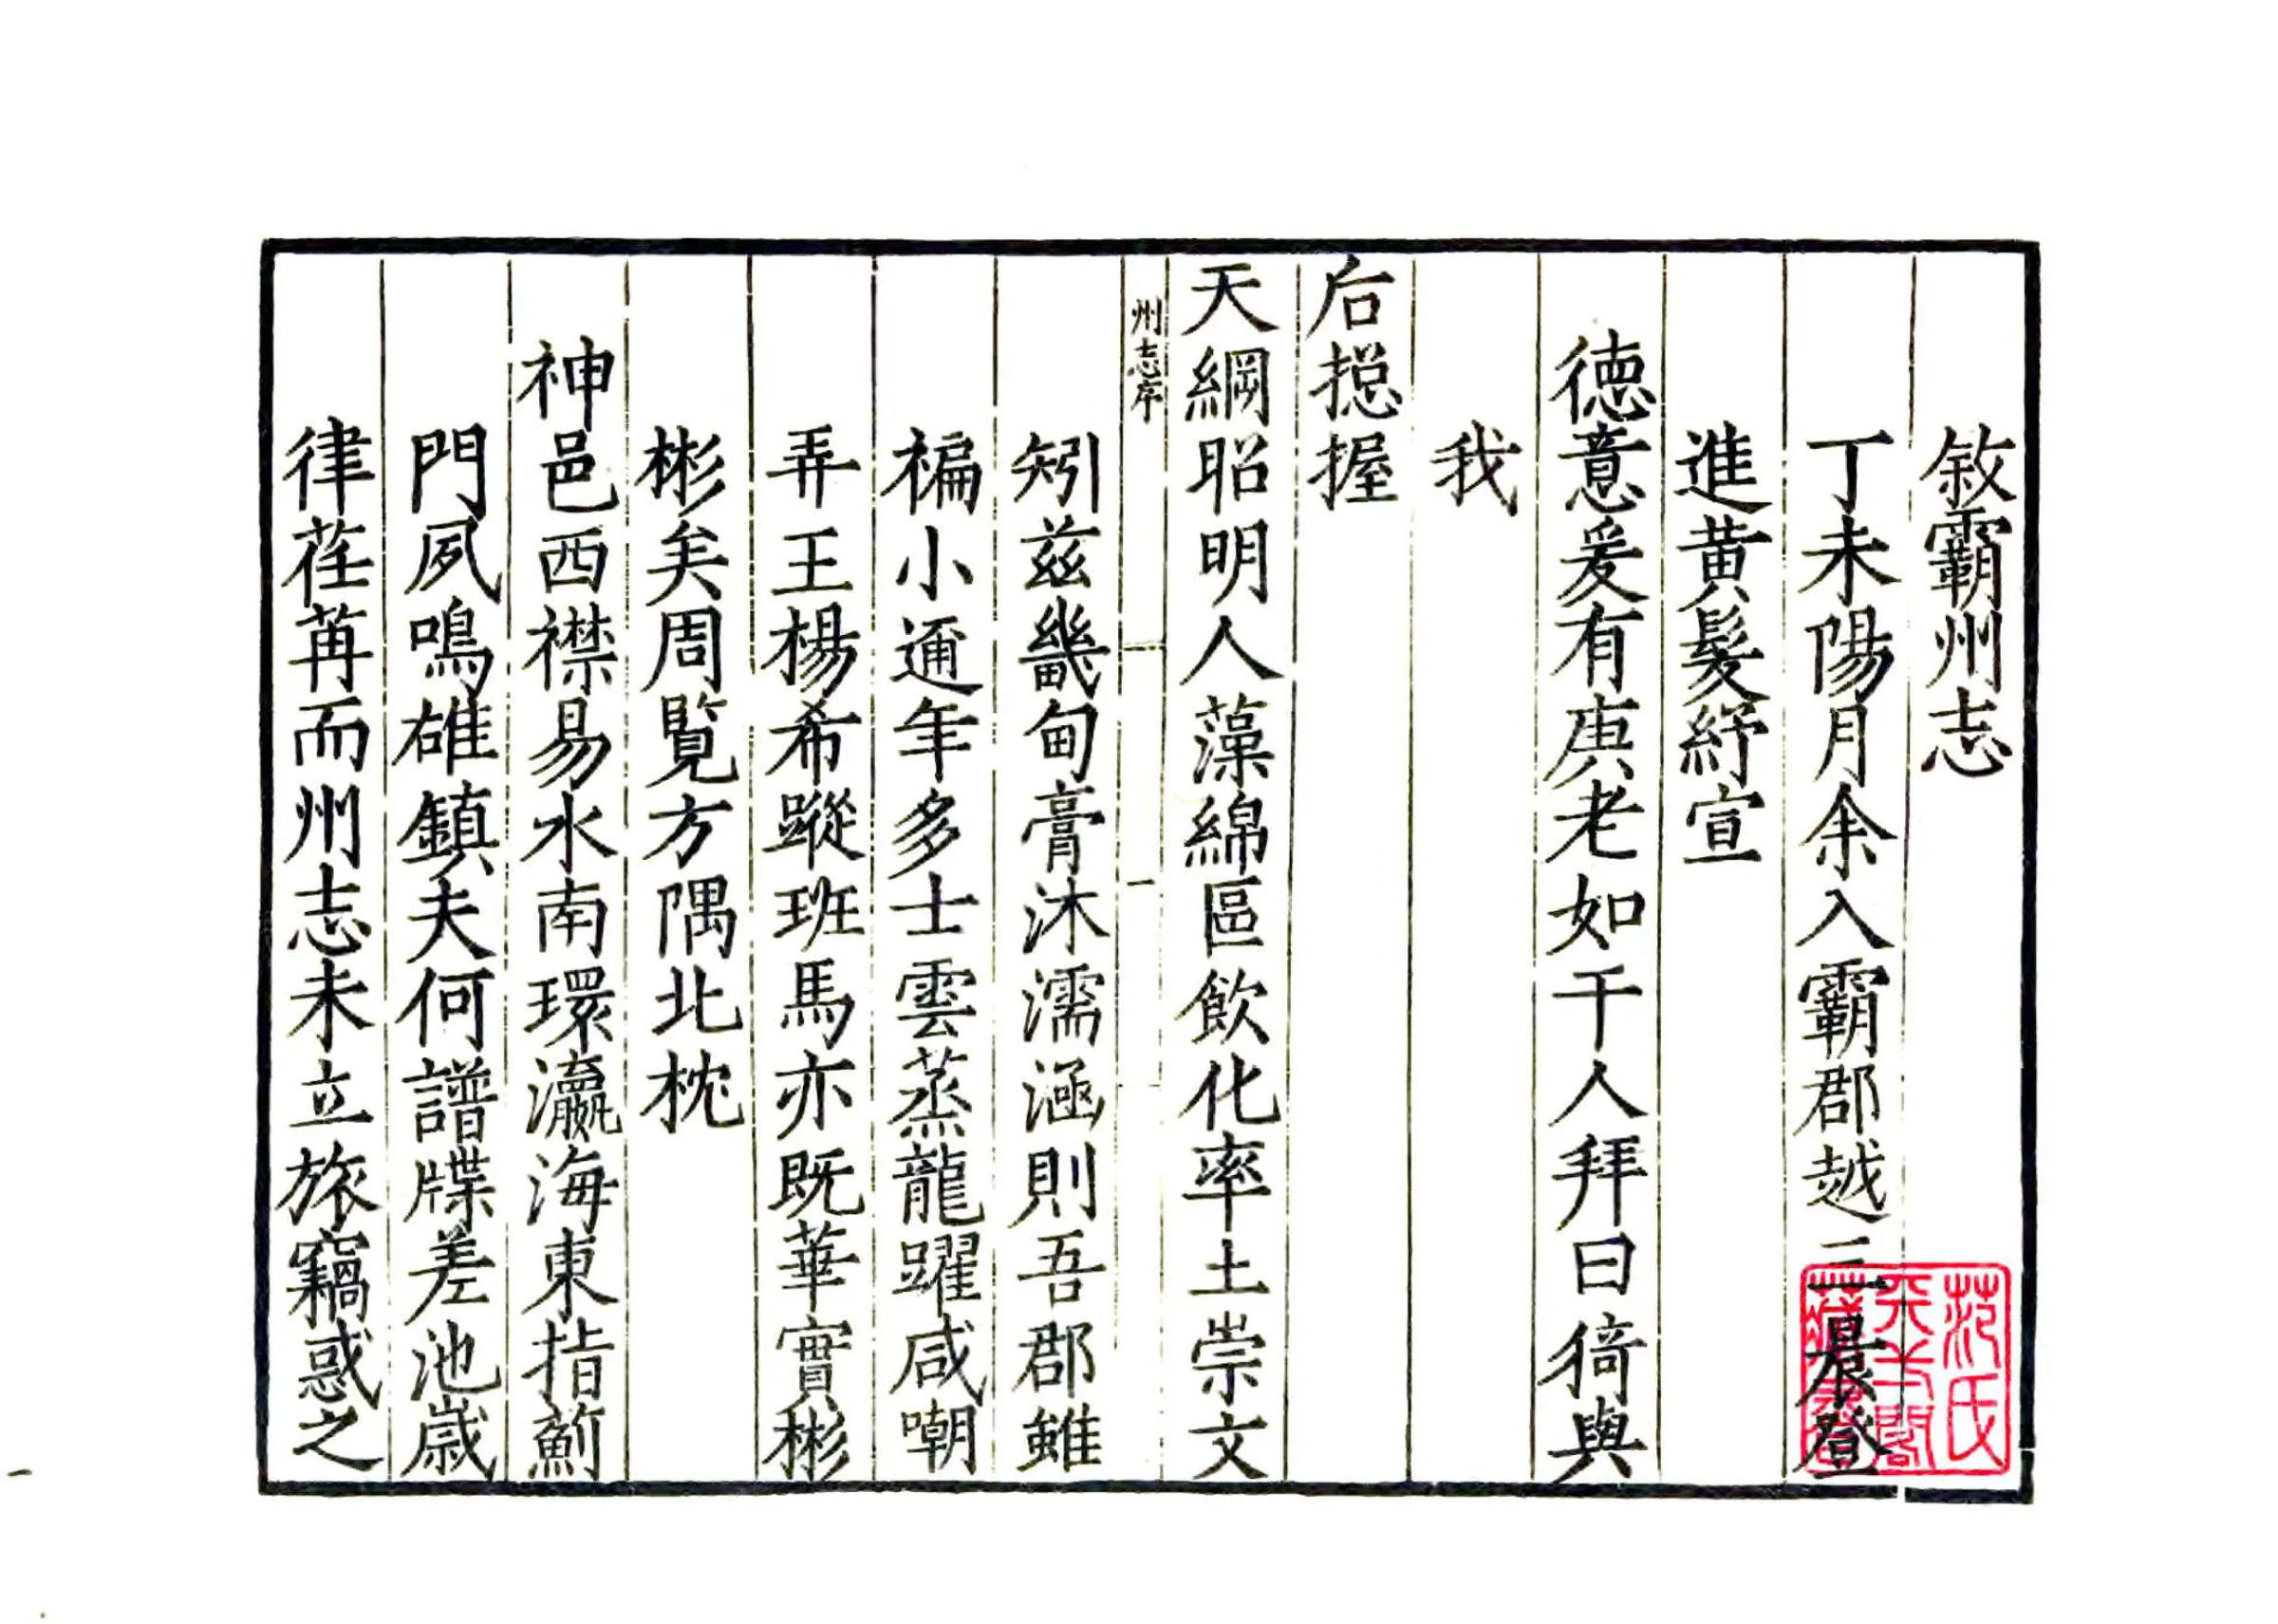 敘霸州志
丁未陽月余入霸郡越三晨登
進黃髮紓宣
德意爰有庚老如干人拜曰猗與
我
后揔握
天綱昭明人藻綿區飲化率土崇文
州志序
一
矧茲畿甸膏沐濡涵則吾郡雖
褊小邇年多士雲蒸龍躍咸嘲
弄王楊希蹤班馬亦既華實彬
彬矣周覽方隅北枕
神邑西襟易水南環瀛海東指薊
門夙鳴雄鎮夫何譜牒差池歲
律荏苒而州志未立旅竊惑之
范氏
天一閣
藏書